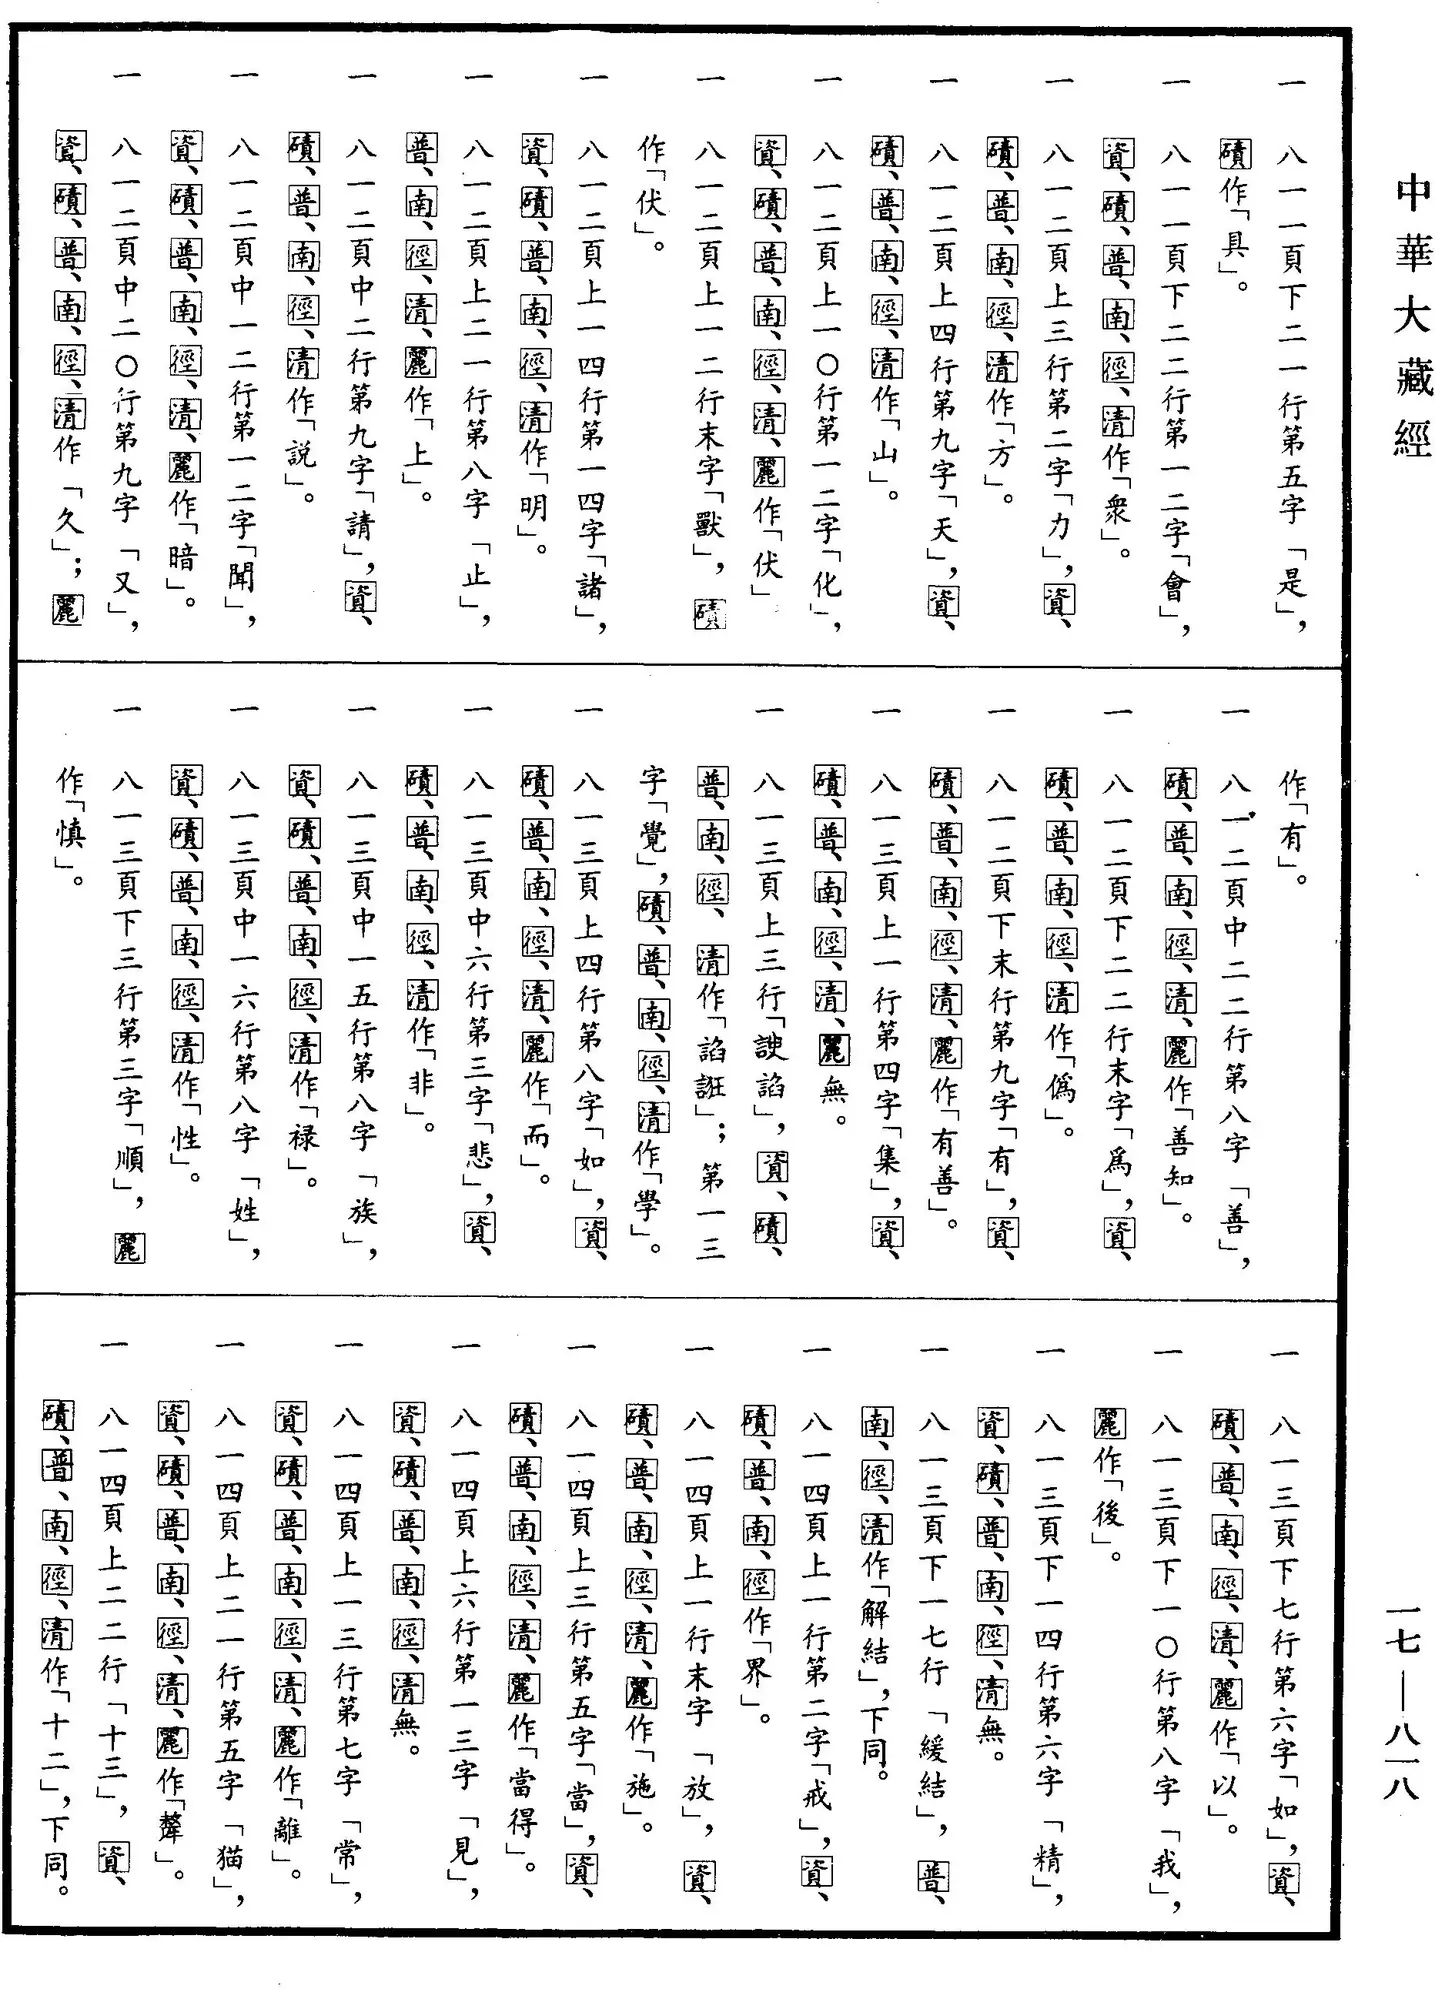 中華大藏經
一　八一一頁下二一行第五字「是」，
磧作「具」。
一　八一一頁下二二行第一二字「會」，
資、磧、普、南、徑、清作「衆」。
一　八一二頁上三行第二字「力」，資、
磧、普、南、徑、清作「方」。
一　八一二頁上四行第九字「天」，資、
磧、普、南、徑、清作「山」。
一　八一二頁上一〇行第一二字「化」，
資、磧、普、南、徑、清、麗作「伏」
一　八一二頁上一二行末字「獸」，磧
作「伏」。
一　八一二頁上一四行第一四字「諸」，
資、磧、普、南、徑、清作「明」。
一　八一二頁上二一行第八字「止」，
普、南、徑、清、麗作「上」。
一　八一二頁中二行第九字「請」，資、
磧、普、南、徑、清作「説」。
一　八一二頁中一二行第一二字「聞」，
資、磧、普、南、徑、清、麗作「暗」。
一　八一二頁中二〇行第九字「又」，
資、磧、普、南、徑、清作「久」；麗
作「有」。
一　八一二頁中二二行第八字「善」，
磧、普、南、徑、清、麗作「善知」。
一　八一二頁下二二行末字「爲」，資、
磧、普、南、徑、清作「僞」。
一　八一二頁下末行第九字「有」，資、
磧、普、南、徑、清、麗作「有善」。
一　八一三頁上一行第四字「集」，資、
磧、普、南、徑、清、麗無。
一　八一三頁上三行「諛諂」，資、磧、
普、南、徑、清作「諂誑」；第一三
字「覺」，磧、普、南、徑、清作「學」。
一　八一三頁上四行第八字「如」，資、
磧、普、南、徑、清、麗作「而」。
一　八一三頁中六行第三字「悲」，資、
磧、普、南、徑、清作「非」。
一　八一三頁中一五行第八字「族」，
資、磧、普、南、徑、清作「禄」。
一　八一三頁中一六行第八字「姓」，
資、磧、普、南、徑、清作「性」。
一　八一三頁下三行第三字「順」，麗
作「慎」。
一　八一三頁下七行第六字「如」，資、
磧、普、南、徑、清、麗作「以」。
一　八一三頁下一〇行第八字「我」，
麗作「後」。
一　八一三頁下一四行第六字「精」，
資、磧、普、南、徑、清無。
一　八一三頁下一七行「緩結」，普、
南、徑、清作「解結」，下同。
一　八一四頁上一行第二字「戒」，資、
磧、普、南、徑作「界」。
一　八一四頁上一行末字「放」，資、
磧、普、南、徑、清、麗作「施」。
一　八一四頁上三行第五字「當」，資、
磧、普、南、徑、清、麗作「當得」。
一　八一四頁上六行第一三字「見」，
資、磧、普、南、徑、清無。
一　八一四頁上一三行第七字「常」，
資、磧、普、南、徑、清、麗作「離」。
一　八一四頁上二一行第五字「猫」，
資、磧、普、南、徑、清、麗作「犛」。
一　八一四頁上二二行「十三」，資、
磧、普、南、徑、清作「十二」，下同。
一七—八一八